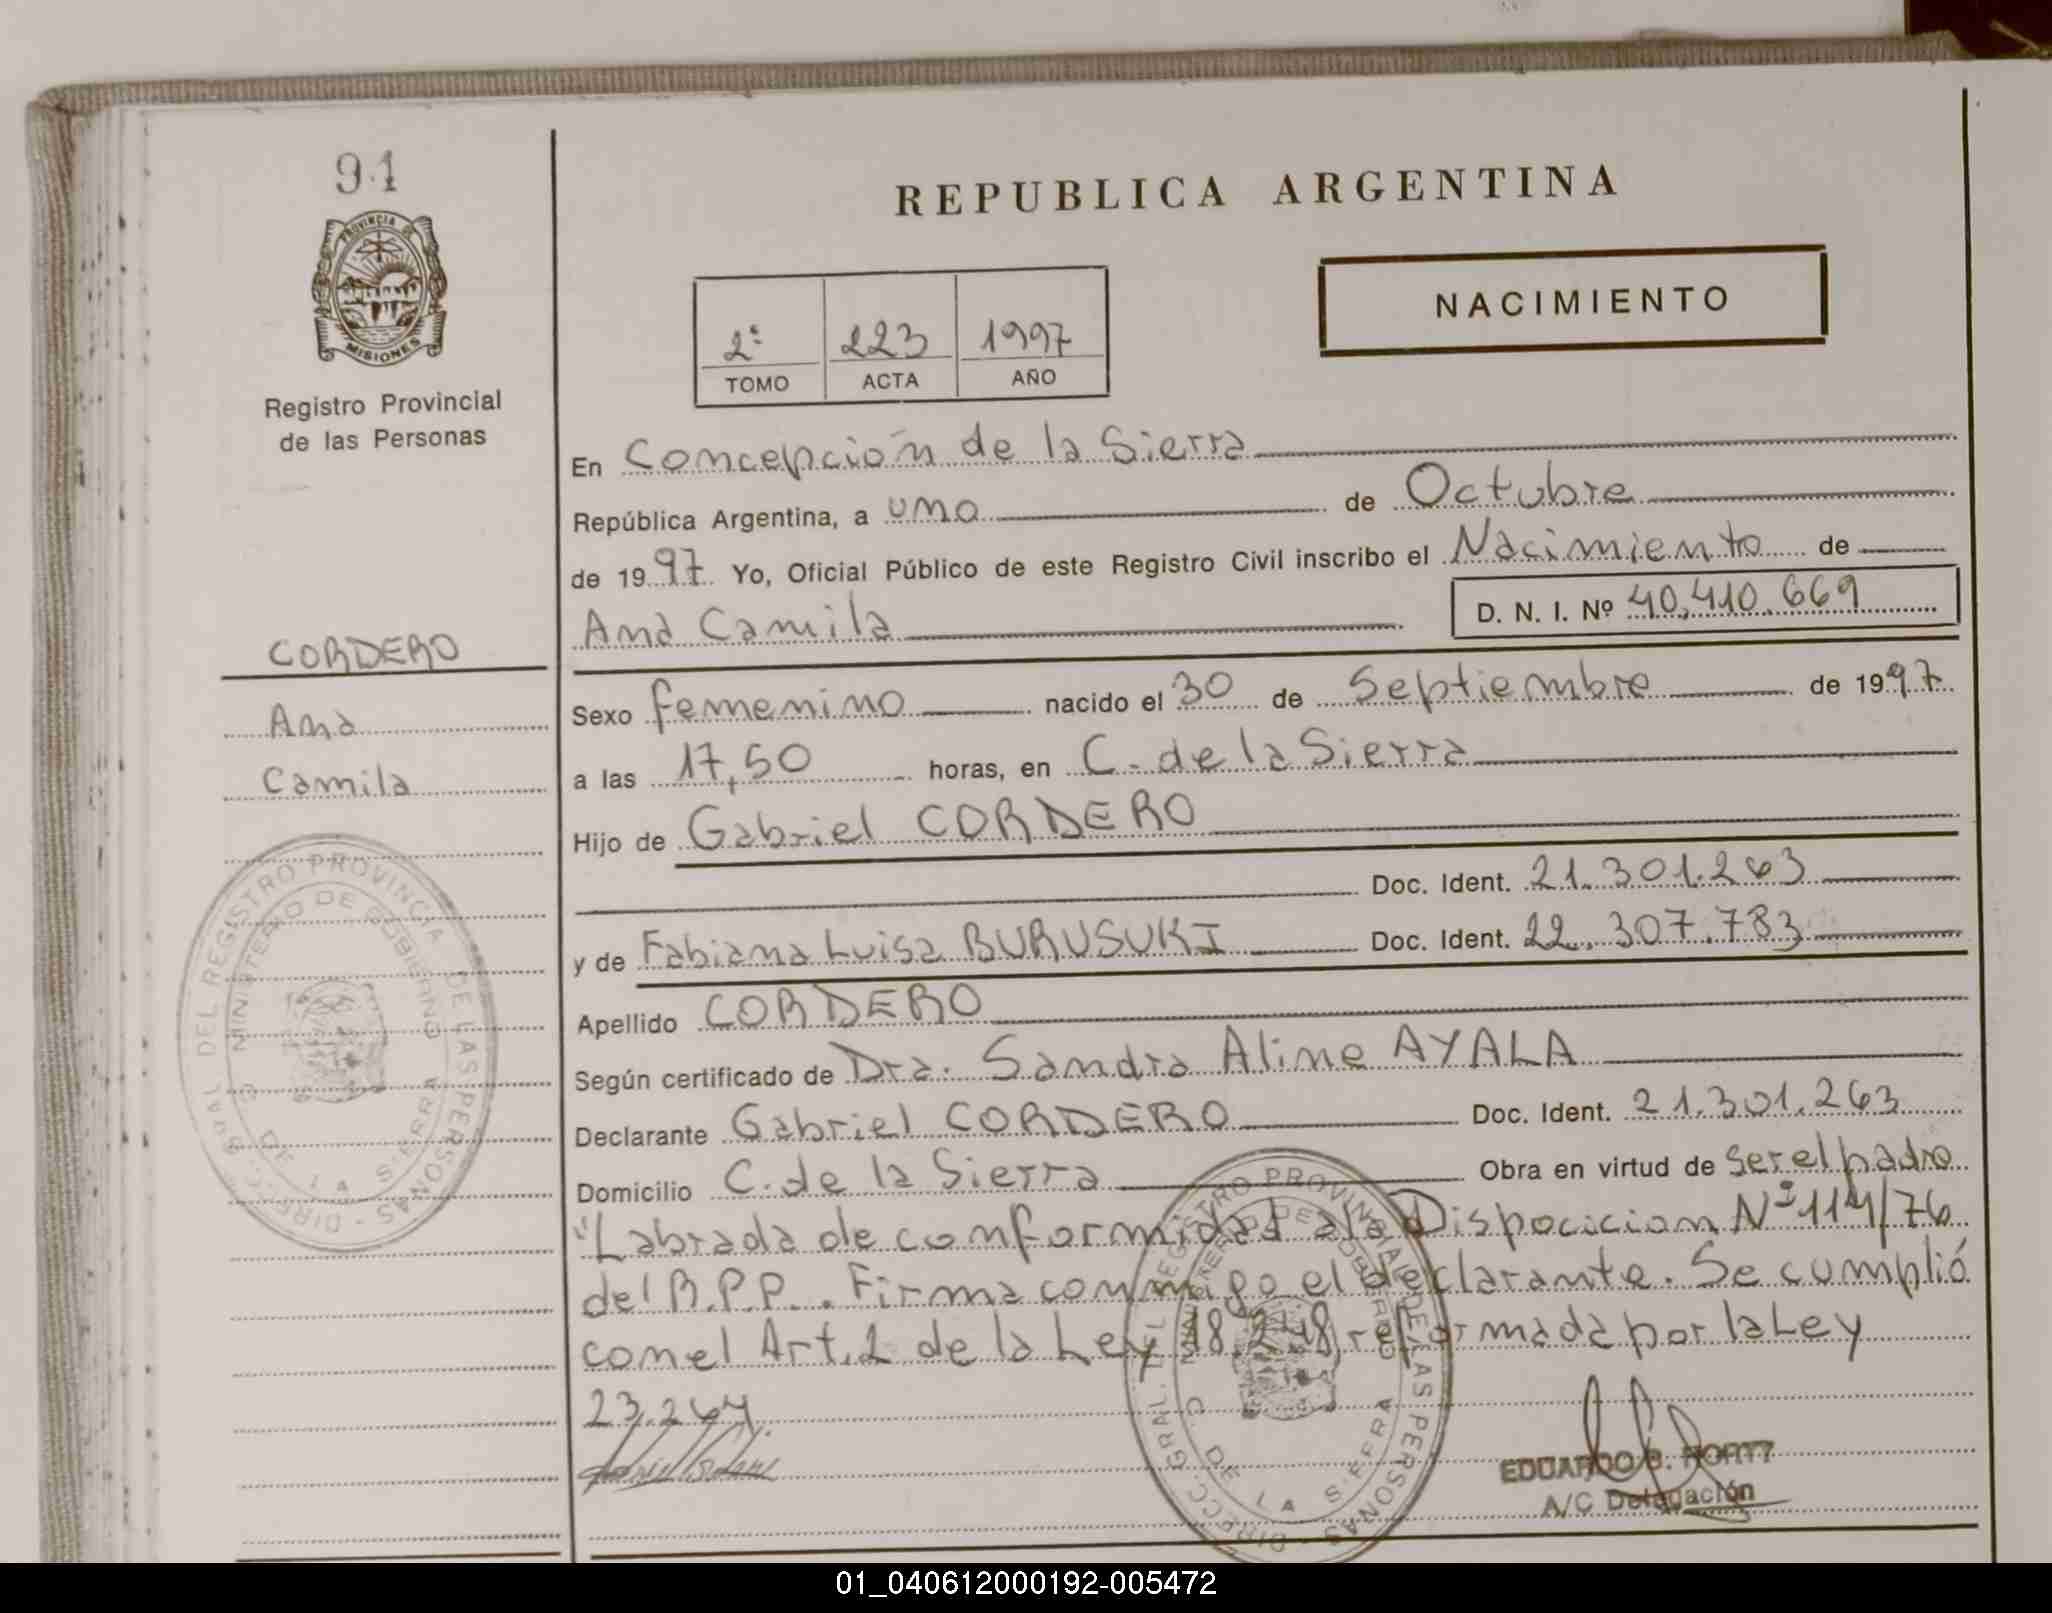 91
PROVINCIA DE
MISIONES
Registro Provincial
de las Personas
CORDERO
Ana
Camila
DIRECC. GRAL. DEL REGISTRO PROVINCIAL DE LAS PERSONAS
MINISTERIO DE GOBIERNO
C. DE LA SIERRA
REPUBLICA ARGENTINA
NACIMIENTO
2º 223 1997
TOMO ACTA AÑO
En Concepción de la Sierra
República Argentina, a uno de Octubre
de 1997 Yo, Oficial Público de este Registro Civil inscribo el Nacimiento de
Ana Camila D. N. I. Nº 40.410.669
Sexo femenino nacido el 30 de Septiembre de 1997
a las 17,50 horas, en C. de la Sierra
Hijo de Gabriel CORDERO
Doc. Ident. 21.301.263
y de Fabiana Luisa BURUSUKI Doc. Ident. 22.307.783
Apellido CORDERO
Según certificado de Dra. Sandra Aline AYALA
Declarante Gabriel CORDERO Doc. Ident. 21.301.263
Domicilio C. de la Sierra Obra en virtud de ser el padre
"Labrada de conformidad a la Disposicion Nº 114/76
del R.P.P.. Firma conmigo el declarante. Se cumplió
con el Art. 2 de la Ley 18.248 reformada por la Ley
23.264.
DIRECC. GRAL. DEL REGISTRO PROVINCIAL DE LAS PERSONAS
MINISTERIO DE GOBIERNO
C. DE LA SIERRA
EDUARDO
A/C Delegación
01_040612000192-005472